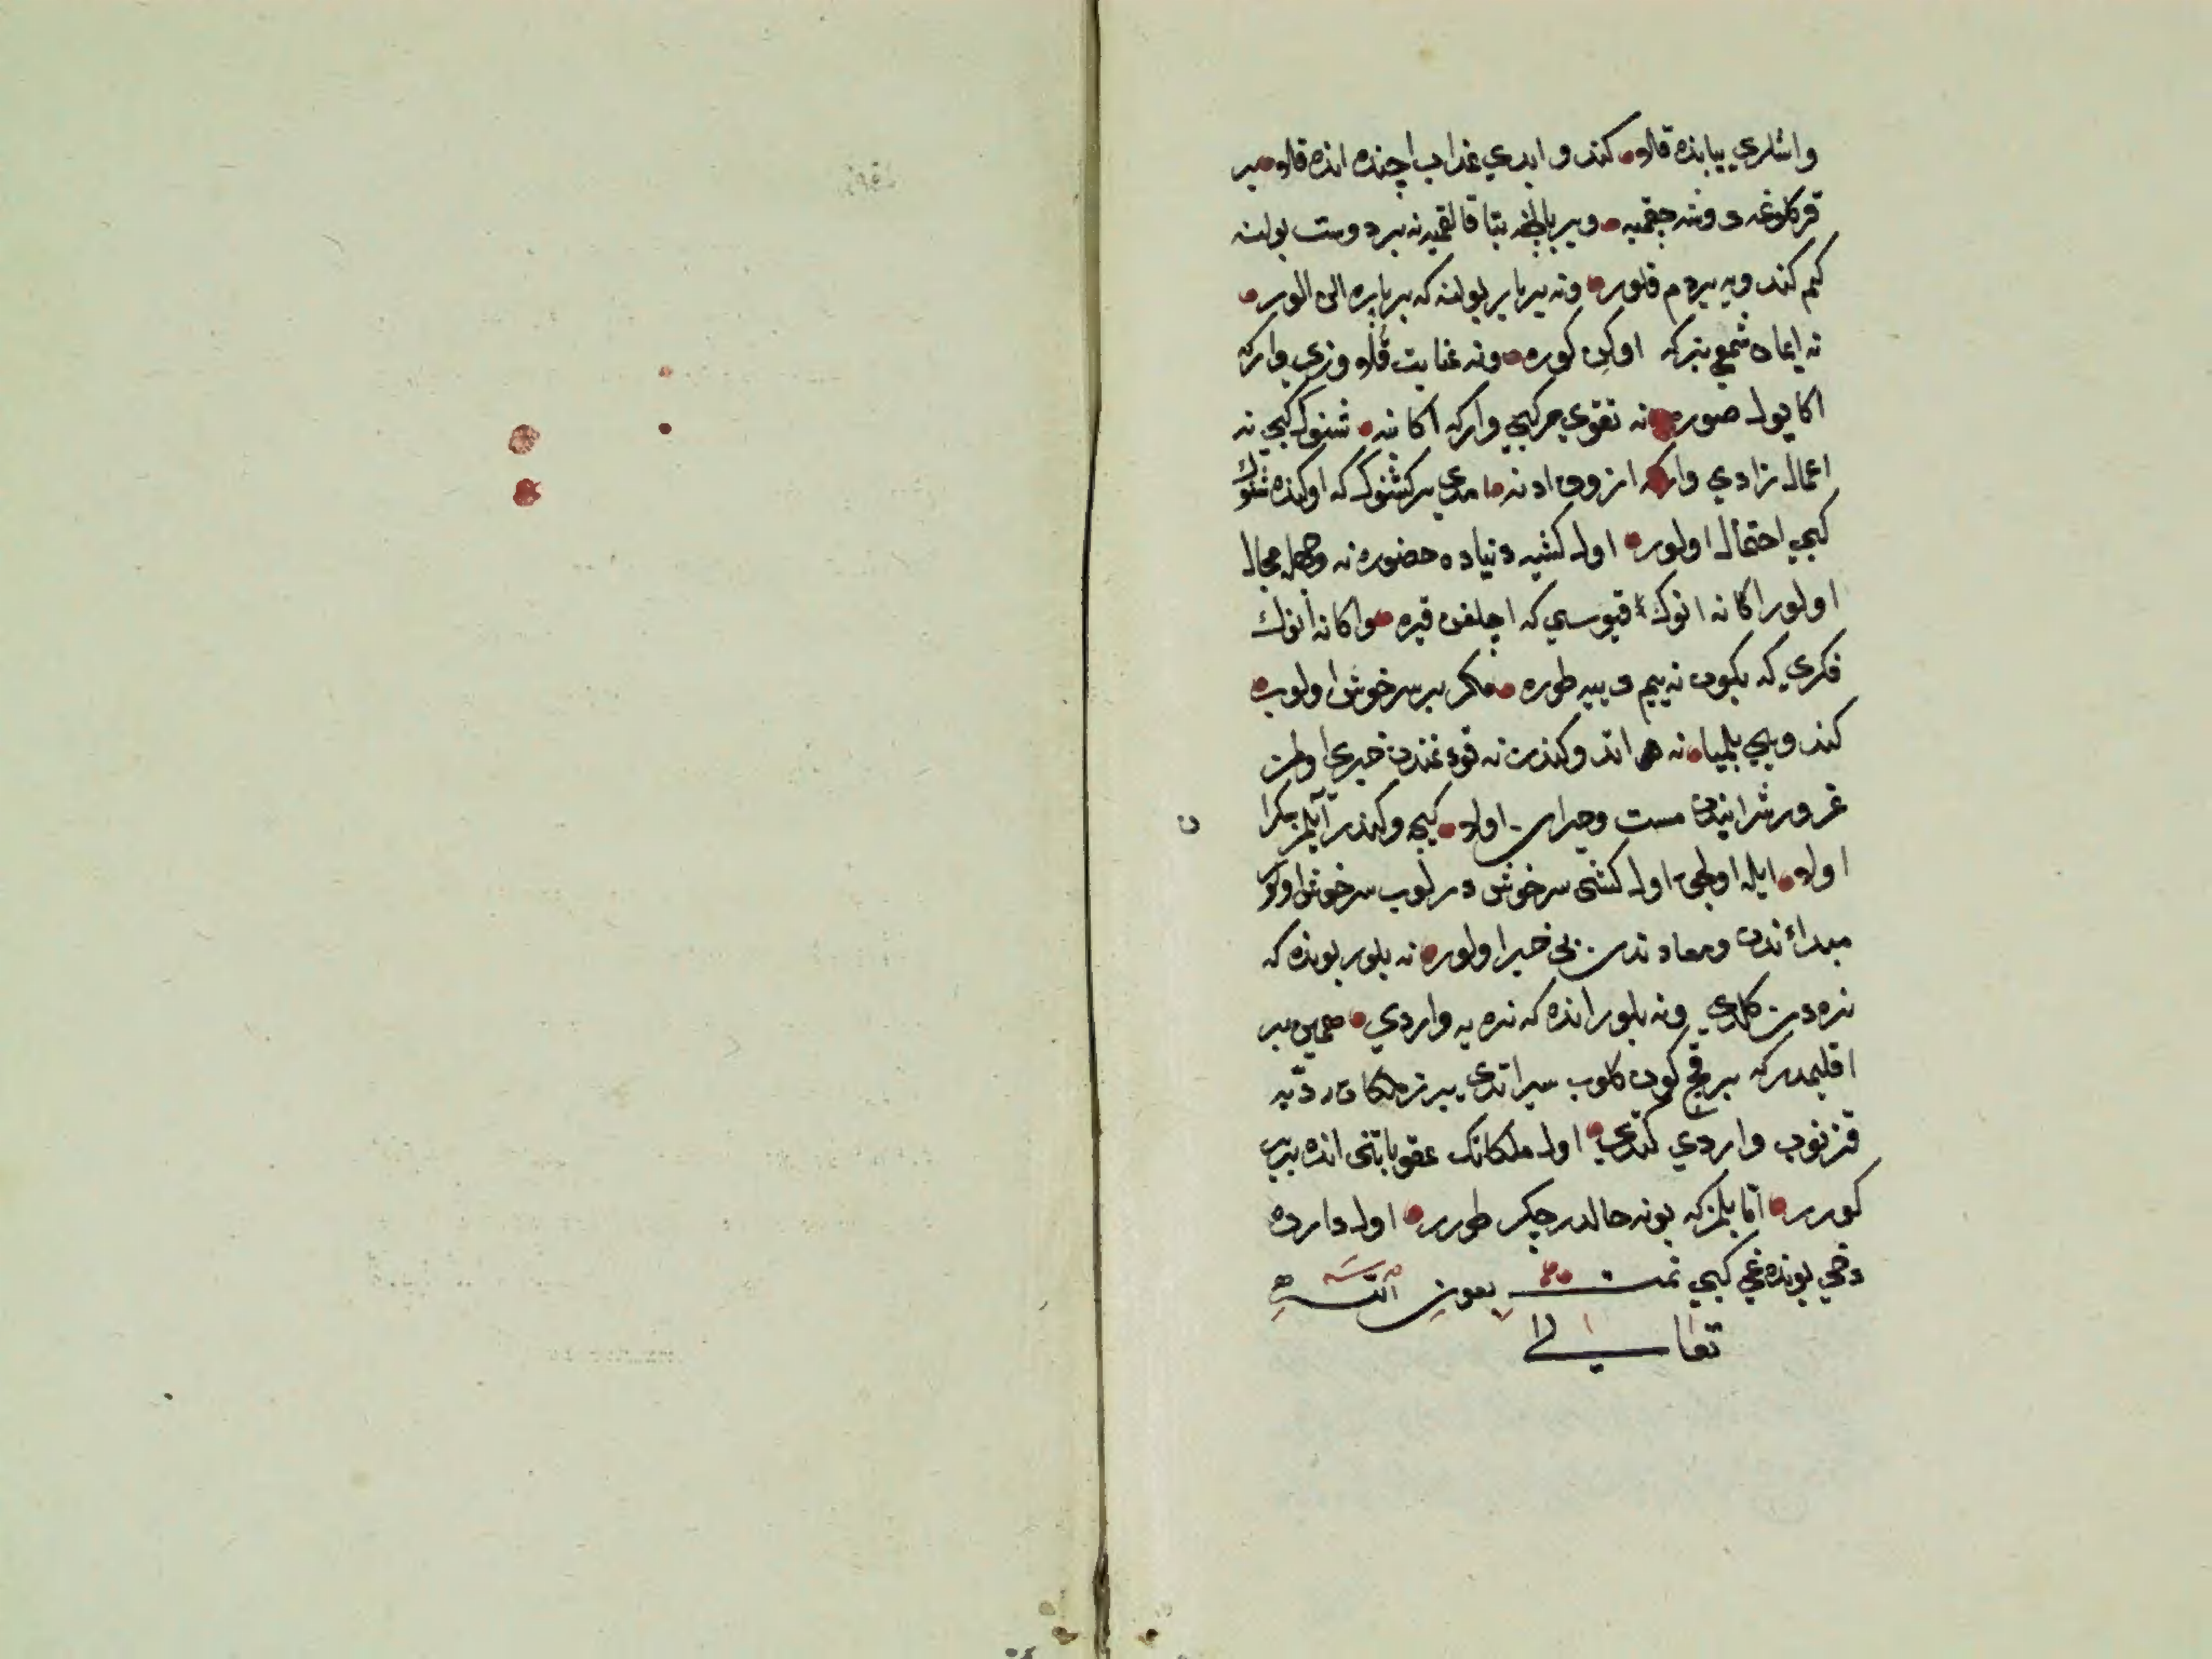 وانلري بيابنده قاله كندو ابدي عذاب اچنده انده قاله بر
قركلوغه دوشه چقميه وير باطغه بتا قالقميه نه بر دوست بولنه
كم كندويه يردم قلور ونه بر يار بولنه كه بر پاره الن الور
نه ايمان شمعي بتر كه اوكن كوره ونه عنايت قلاوزي وار كه
اكا يول صوره نه تقوي مركبي وار كه اكا بنه شنوك كبي نه
اعمال زادي وار كه ازوق ادنه امدي بر كشنوك كه اوكنده شنوك
كبي احتمال اولور اول كشيه دنياده حضور نه وجهله مجال
اولور اكا نه انوك قپوسي كه اچلغن قيره واكا نه انوك
فكري كه بكون نه ييم دييه طوره مكر بر سرخوش اولوب
كندويي بلميا نه اندوكندن نه قودغندن خبري اولمز
غرور شرابندن مست وحيران اوله كيجه وكندز ايلمز بكرا
اوله ايله اولجق اول كشي سرخوش درلوب سرخوش اولور
مبدائندن ومعادندن بي خبر اولور نه بلور بونده كه
نره دن كلدي ونه بلور انده كه نره يه واردي همين بر
اقليمدر كه بر قچ كون كلوب سير اتدي بيرنر ملكا ت ردّيه
قزنوب واردي كتدي اول ملكانك عقوباتني انده بتر
كورر امّا بلمز كه بو نه حالدر چكر طورر اول دارده
دخي بونده غي كبي تمت بعون الله
تعالى
ن